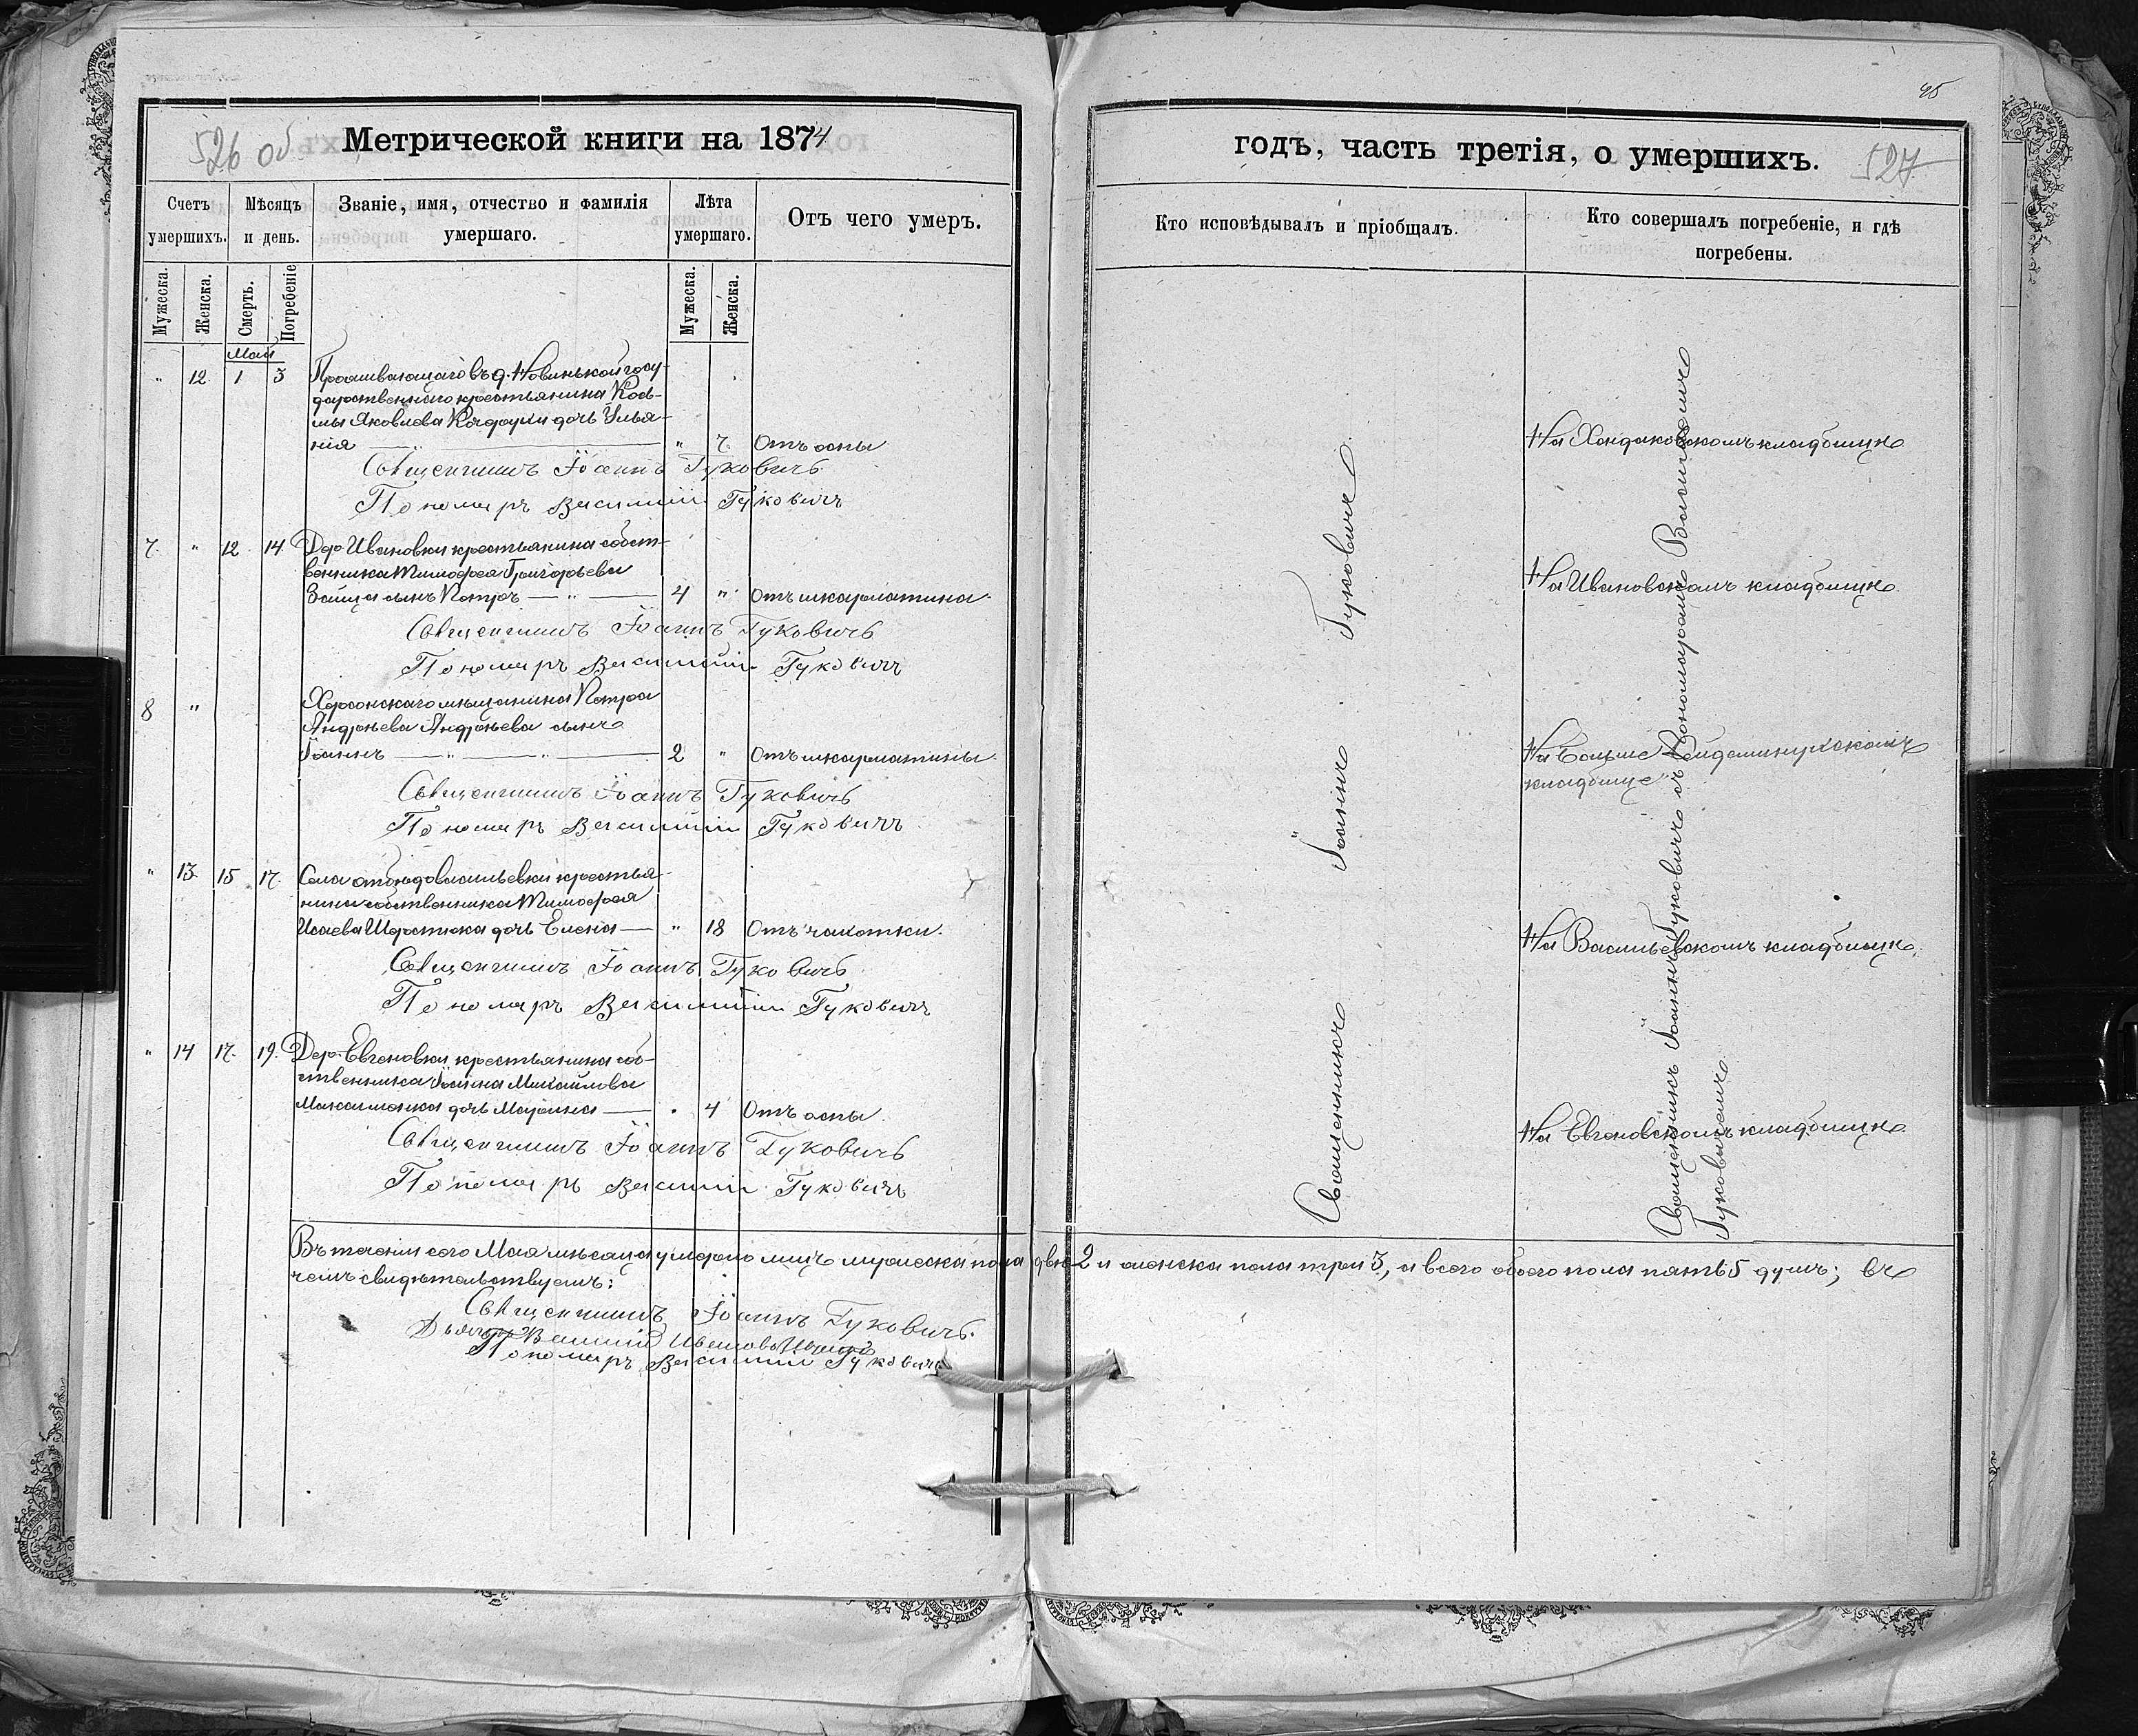 526 об
Метрической книги на 1874
Счетъ умершихъ.
Мѣсяцъ и день.
Званіе, имя, отчество и фамилія умершаго.
Лѣта умершаго.
Отъ чего умеръ.
Мужеска.
Женска.
Смерть.
Погребеніе
Мужеска.
Женска.
Май
" 12 1 3 Проживающаго въ д. Новинькой госу-
дарственнаго крестьянина Косъ-
мы Яковлева дочь Улья-
нія " 7 Отъ оспы
Священникъ Іоаннъ Гуковичъ
Пономарь Василій Гуковичъ
7 " 12 14 Дер Ивановки крестьянина собст-
венника Тимофея Григорьева
Зайца сынъ Петръ 4 " Отъ шкарлатина
Священникъ Іоаннъ Гуковичъ
Пономарь Василій Гуковичъ
8 " Херсонскаго мѣщанина Петра
Андрѣева Андрѣева сынъ
Іоаннъ 2 " Отъ шкарлатины.
Священникъ Іоаннъ Гуковичъ
Пономарь Василій Гуковичъ
" 13 15 17 Села крестья-
нина собственника Тимофея
Исаева Шерстюка дочь Елена " 18 Отъ чахотки.
Священникъ Іоаннъ Гуковичъ
Пономарь Василій Гуковичъ
" 14 17 19 Дер. Евгеновки крестьянина соб-
ственника Іоанна Михайлова
Максименка дочь Марина " 4 Отъ оспы
Священникъ Іоаннъ Гуковичъ
Пономарь Василій Гуковичъ
Въ теченіи сего Мая мѣсяца умерло лицъ мужеска пола двѣ 2 и женска пола три 3, а всего обоего пола пять 5 душъ; въ
чемъ свидѣтельствуемъ:
Священникъ Іоаннъ Гуковичъ.
Дьячекъ Василій Ивановъ
Пономарь Василій Гуковичъ
годъ, часть третія, о умершихъ.
527
Кто исповѣдывалъ и пріобщалъ.
Кто совершалъ погребеніе, и гдѣ погребены.
Священникъ Іоаннъ Гуковичъ
На Хондаковскомъ кладбищѣ
На Ивановскомъ кладбищѣ
На Больше
кладбище
На Васильевскомъ кладбищѣ.
На Евгеновскомъ кладбищѣ
Священникъ Іоаннъ Гуковичъ съ Пономаремъ Василіемъ
Гуковичемъ